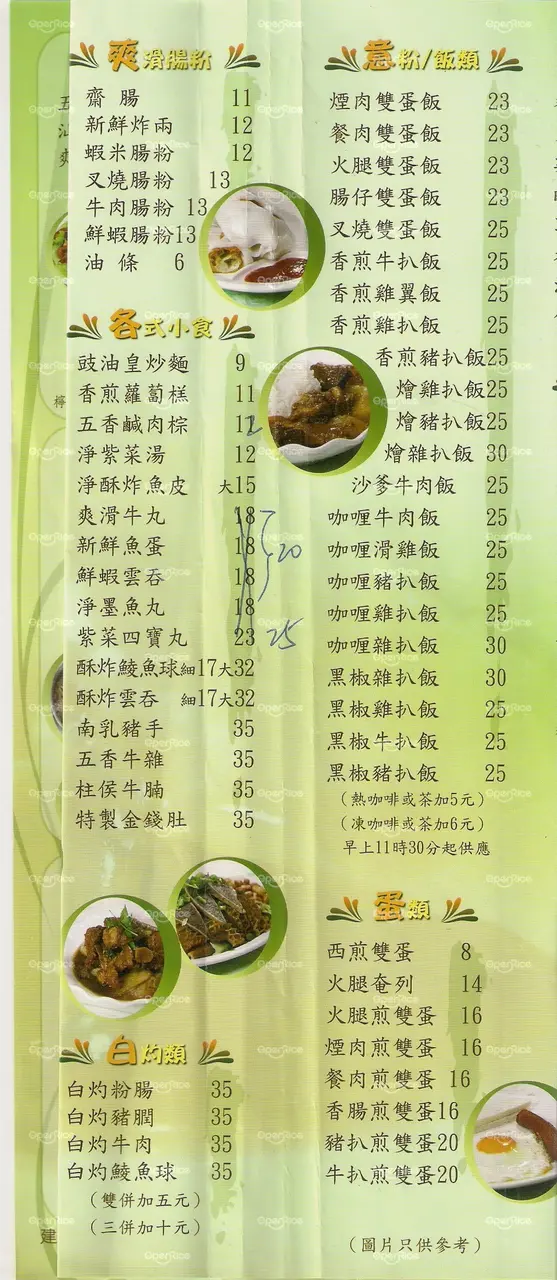 爽滑腸粉
齋腸 11
新鮮炸兩 12
蝦米腸粉 12
叉燒腸粉 13
牛肉腸粉 13
鮮蝦腸粉 13
油條 6
各式小食
豉油皇炒麵 9
香煎蘿蔔糕 11
五香鹹肉棕 11 2
淨紫菜湯 12
淨酥炸魚皮 大15
爽滑牛丸 18
新鮮魚蛋 18
鮮蝦雲吞 18
淨墨魚丸 18
20
紫菜四寶丸 23 25
酥炸鯪魚球 細17大32
酥炸雲吞 細17大32
南乳豬手 35
五香牛雜 35
柱侯牛腩 35
特製金錢肚 35
白灼類
白灼粉腸 35
白灼豬膶 35
白灼牛肉 35
白灼鯪魚球 35
(雙併加五元)
(三併加十元)
意粉/飯類
煙肉雙蛋飯 23
餐肉雙蛋飯 23
火腿雙蛋飯 23
腸仔雙蛋飯 23
叉燒雙蛋飯 25
香煎牛扒飯 25
香煎雞翼飯 25
香煎雞扒飯 25
香煎豬扒飯 25
燴雞扒飯 25
燴豬扒飯 25
燴雜扒飯 30
沙爹牛肉飯 25
咖喱牛肉飯 25
咖喱滑雞飯 25
咖喱豬扒飯 25
咖喱雞扒飯 25
咖喱雜扒飯 30
黑椒雜扒飯 30
黑椒雞扒飯 25
黑椒牛扒飯 25
黑椒豬扒飯 25
(熱咖啡或茶加5元)
(凍咖啡或茶加6元)
早上11時30分起供應
蛋類
西煎雙蛋 8
火腿奄列 14
火腿煎雙蛋 16
煙肉煎雙蛋 16
餐肉煎雙蛋 16
香腸煎雙蛋 16
豬扒煎雙蛋 20
牛扒煎雙蛋 20
(圖片只供參考)
建